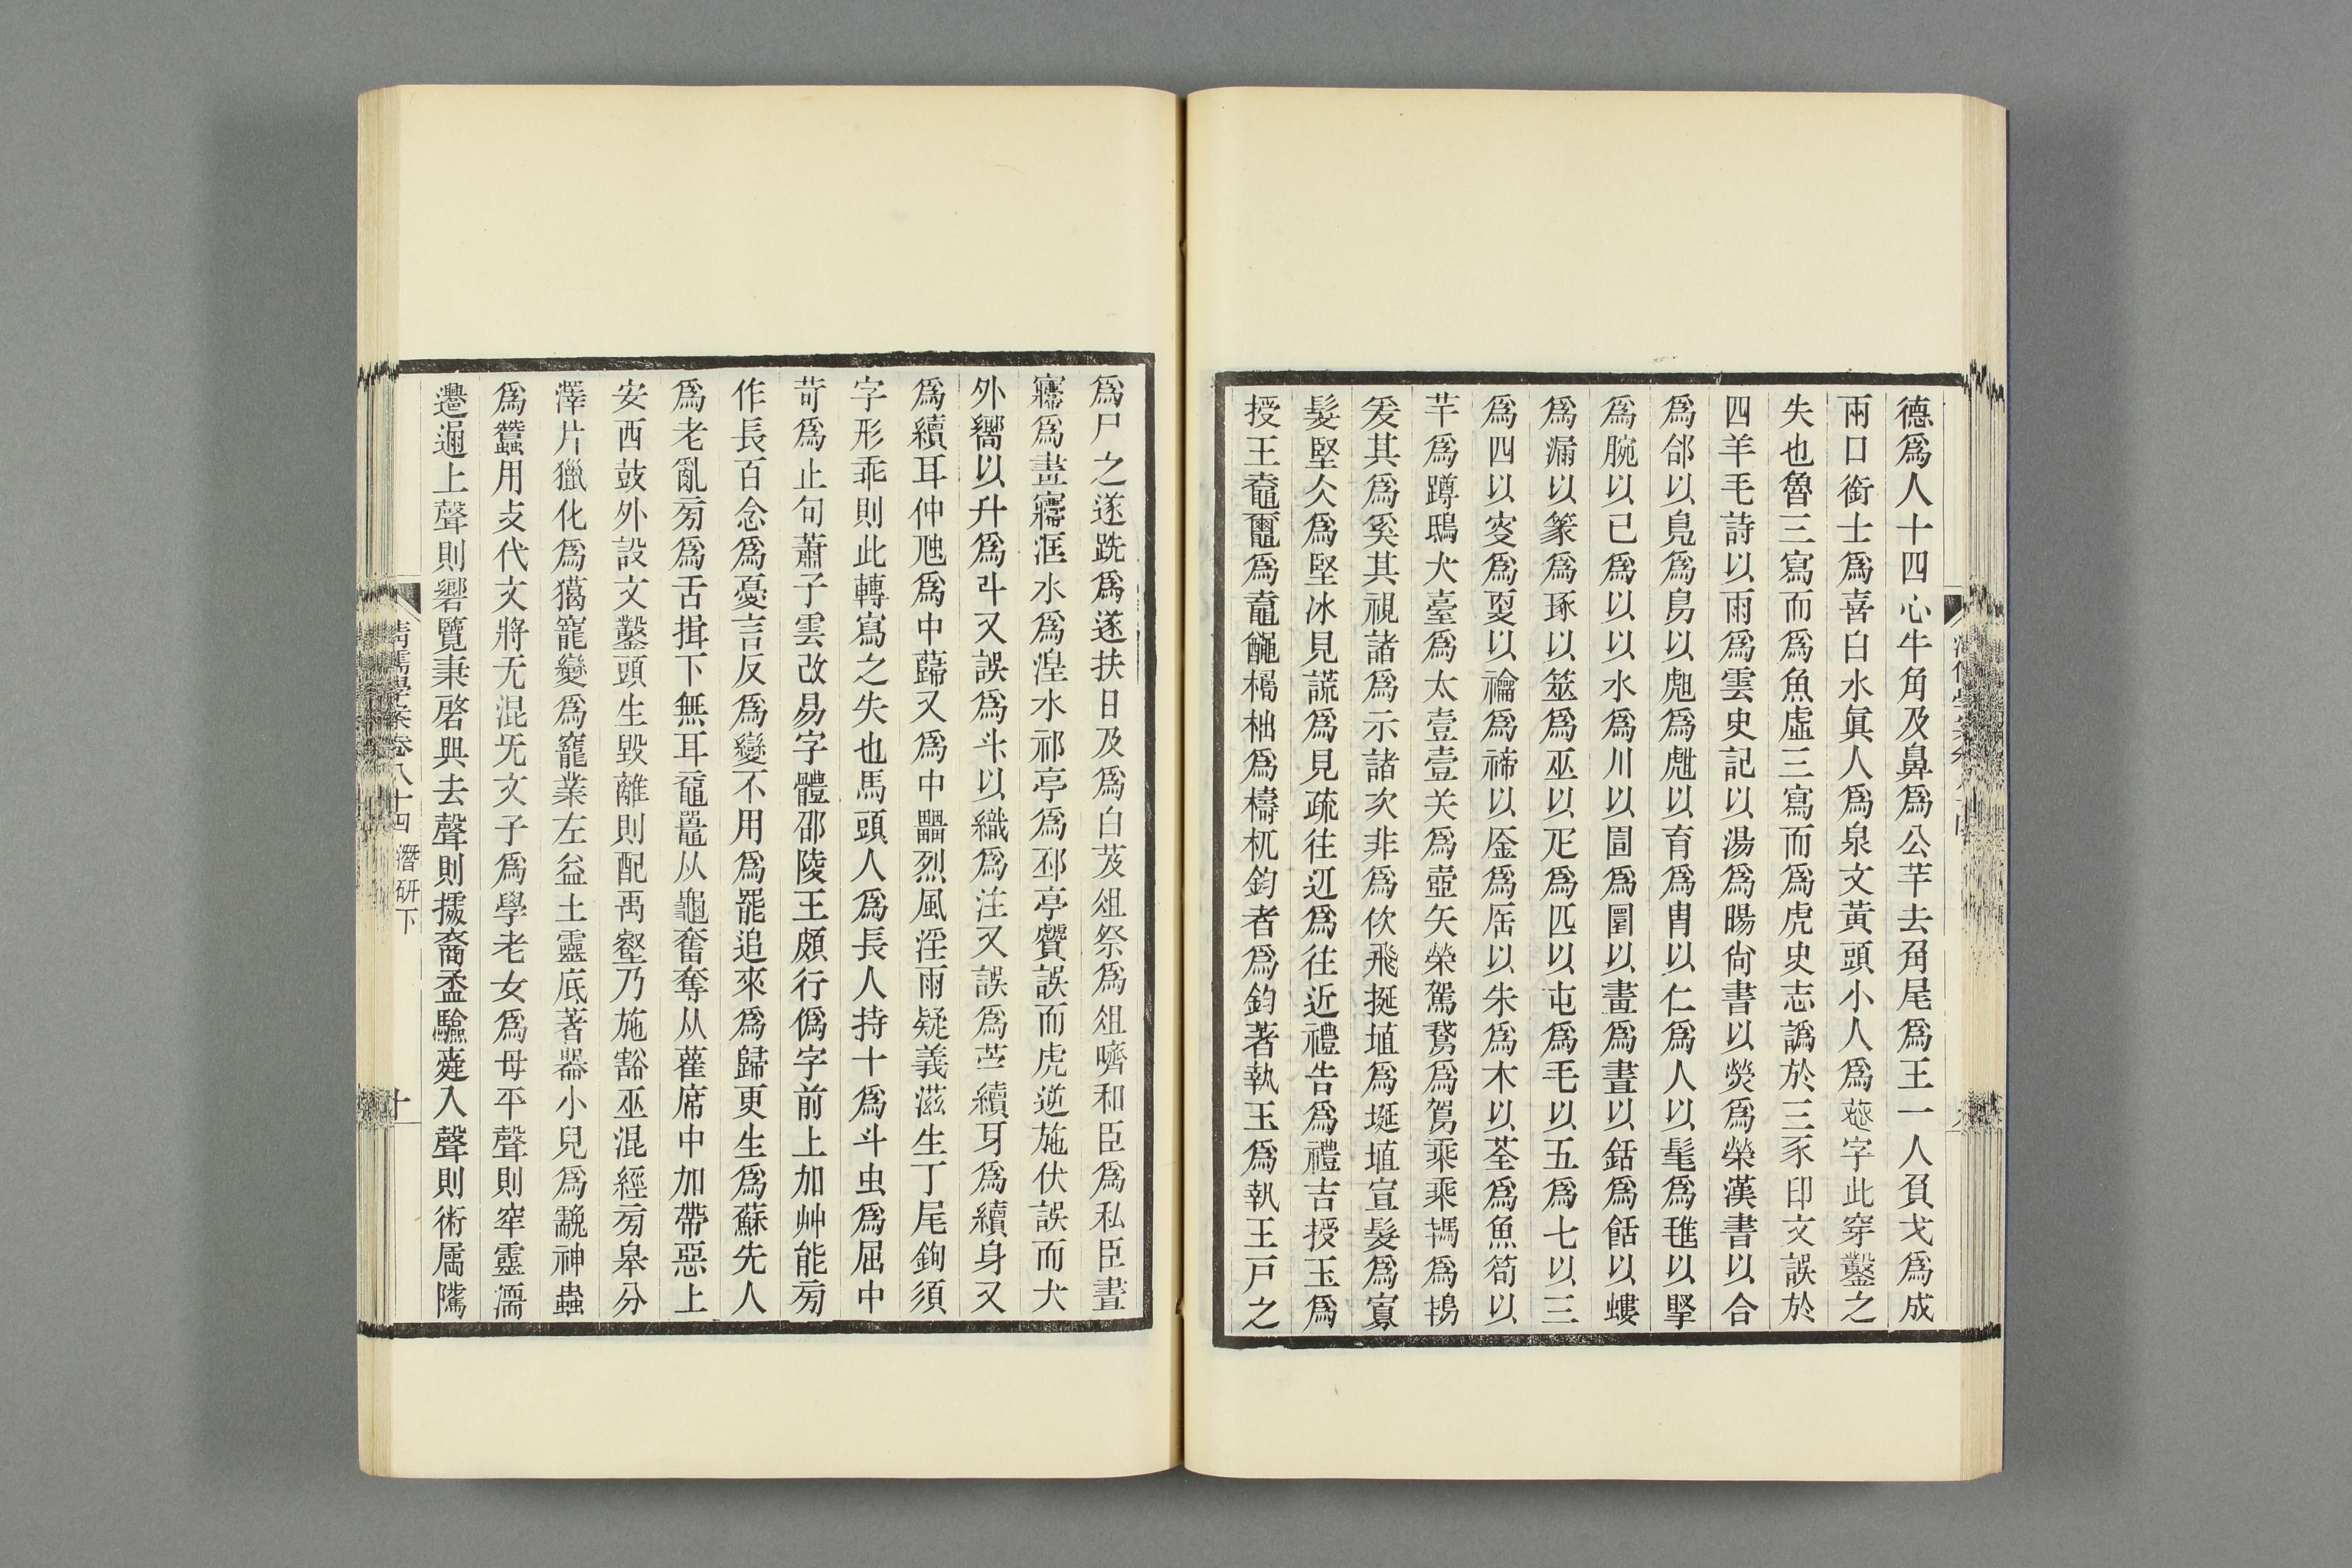 德爲人十四心牛角及鼻爲公芊去角尾爲王一人負戈爲成
兩口銜士爲喜白水眞人爲泉文黃頭小人爲恭字此穿鑿之
失也魯三寫而爲魚虛三寫而爲虎史志譌於三豕印文誤於
四羊毛詩以雨爲雲史記以湯爲暘尙書以熒爲榮漢書以合
爲郃以鳧爲以虺爲以育爲胄以仁爲人以髦爲以掔
爲腕以已爲以以水爲川以圊爲圉以畫爲晝以銛爲餂以螻
爲漏以篆爲琢以筮爲巫以疋爲匹以屯爲毛以五爲七以三
爲四以叜爲更以禴爲禘以爲以朱爲木以荃爲魚笱以
芊爲蹲鴟犬臺爲太壹壹关爲壺矢榮駕鵞爲鴐乘乘爲
爰其爲奚其視諸爲示諸次非爲佽飛挻埴爲埏埴宣髮爲寡
髮堅久爲堅冰見謊爲見疏往辺爲往近禮告爲禮吉授玉爲
授王鼀爲鼀檮杌鈞者爲鈞著執玉爲執王戸之
爲尸之遂跣爲遂扶日及爲白芨俎祭爲爼嚌和臣爲私臣晝
寢爲畫寢洭水爲湟水祁亭爲邳亭贙誤而虎逆施伏誤而犬
外嚮以升爲斗又誤爲斗以織爲注又誤爲苎續牙爲續身又
爲續耳仲虺爲中蘬又爲中烈風淫雨疑義滋生丁尾鉤須
字形乖則此轉寫之失也馬頭人爲長人持十爲斗虫爲屈中
苛爲止句蕭子雲改易字體邵陵王頗行僞字前上加艸能㫄
作長百念爲憂言反爲變不用爲罷追來爲歸更生爲蘇先人
爲老亂㫄爲舌揖下無耳黿鼉从龜奮奪从雚席中加帶惡上
安西鼓外設文鑿頭生毀離則配禹壑乃施豁巫混經㫄皋分
澤片獵化爲獦寵變爲竉業左益土靈底著器小兒爲神蟲
爲蠶用攴代文將无混旡文子爲學老女爲母平聲則靈
上聲則覽啓興去聲則入聲則術
清儒學案卷八十四 潛研下
十